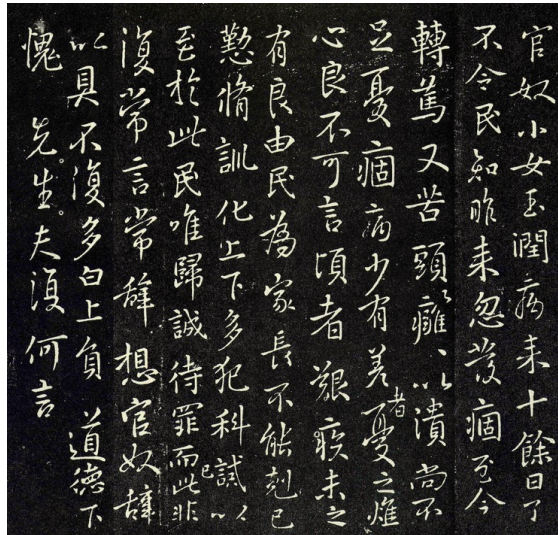 官奴小女玉潤病来十餘日了
不令民知昨来忽發痼至今
轉篤又苦頭癰癰、以潰尚不
足憂痼病少有差者憂之燋
心良不可言頃者艱疾未之
有良由民為家長不能剋己
懃脩訓化上下多犯科誡以
至於此民唯歸誠待罪而此非
復常言常辞想官奴辞
以具不復多白上負道德下
愧先生夫復何言